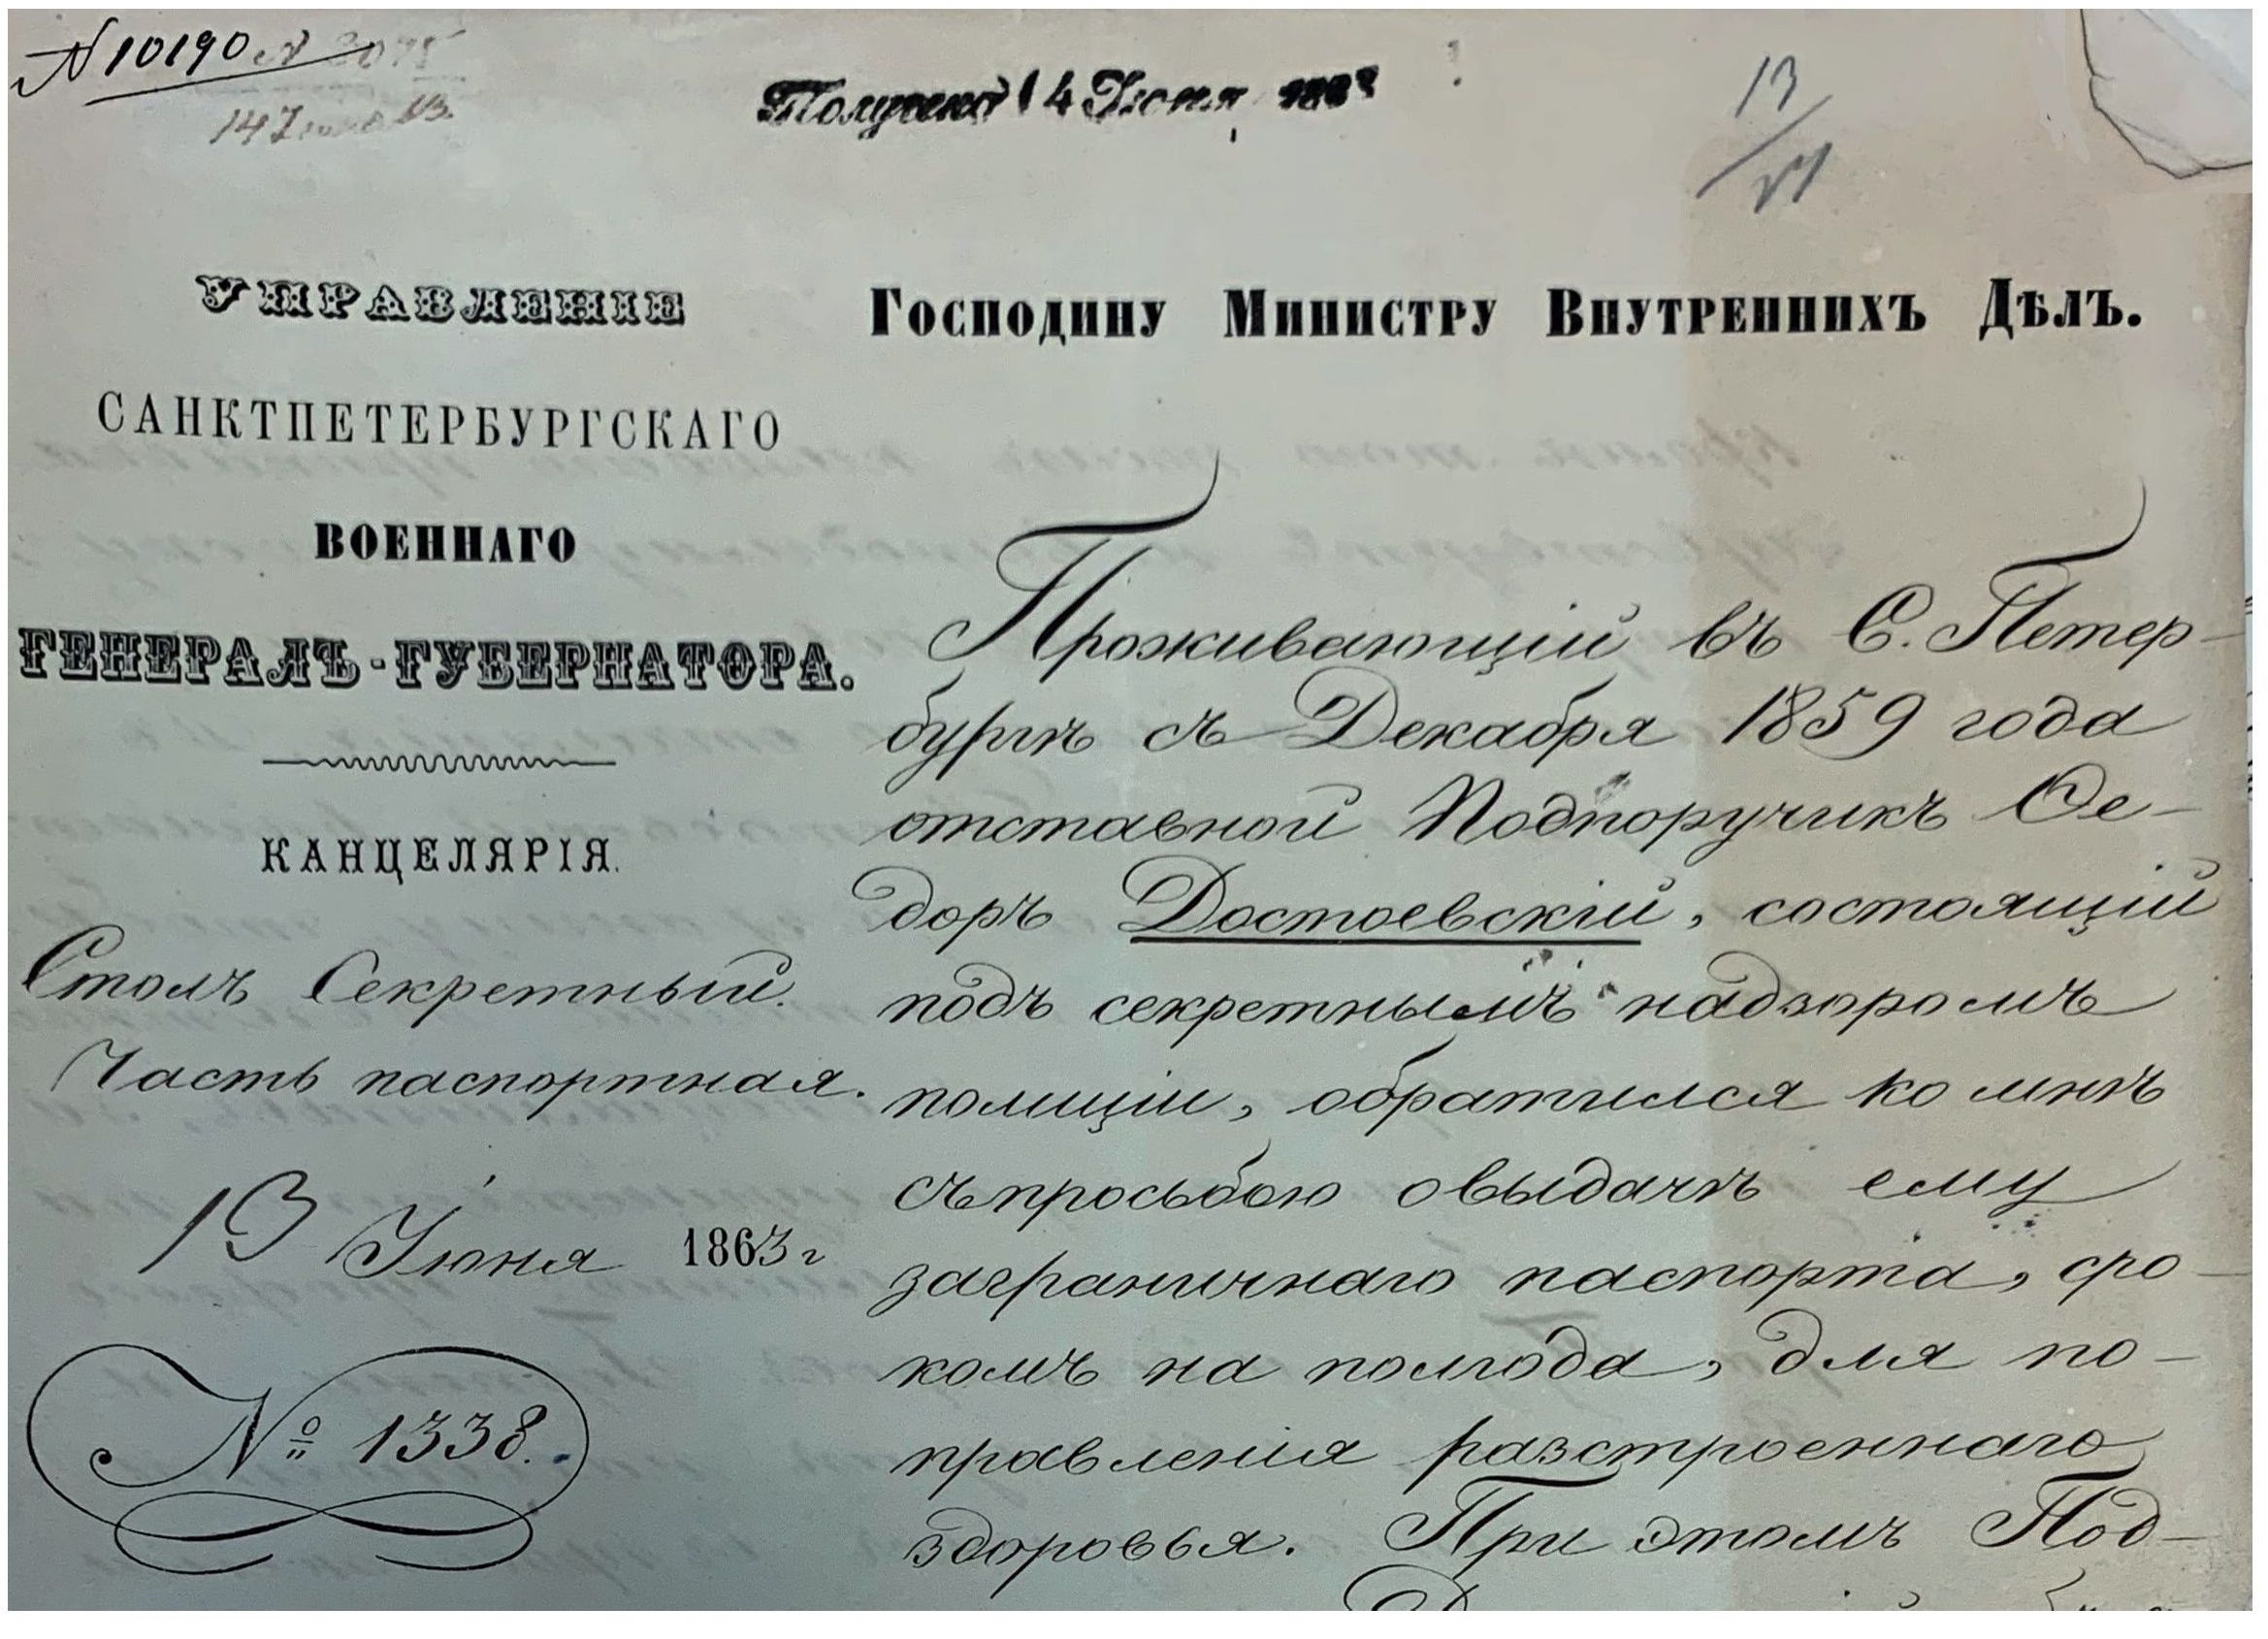 N 10190
14 Июня 63.
Получено 14 Июня 1863
13
УПРАВЛЕНІЕ
САНКТПЕТЕРБУРГСКАГО
ВОЕННАГО
ГЕНЕРАЛЪ-ГУБЕРНАТОРА.
КАНЦЕЛЯРІЯ.
Столъ Секретный.
Часть паспортная.
13 Іюня 1863 г
№ 1338.
Господину Министру Внутреннихъ Дѣлъ.
Проживающій въ С. Петер-
бургѣ съ Декабря 1859 года
отставной Подпоручикъ Ѳе-
доръ Достоевскій, состоящій
подъ секретнымъ надзоромъ
полиціи, обратился ко мнѣ
съ просьбою о выдачѣ ему
заграничнаго паспорта, сро-
комъ на полгода, для по-
правленія разстроеннаго
здоровья. При этомъ Под-